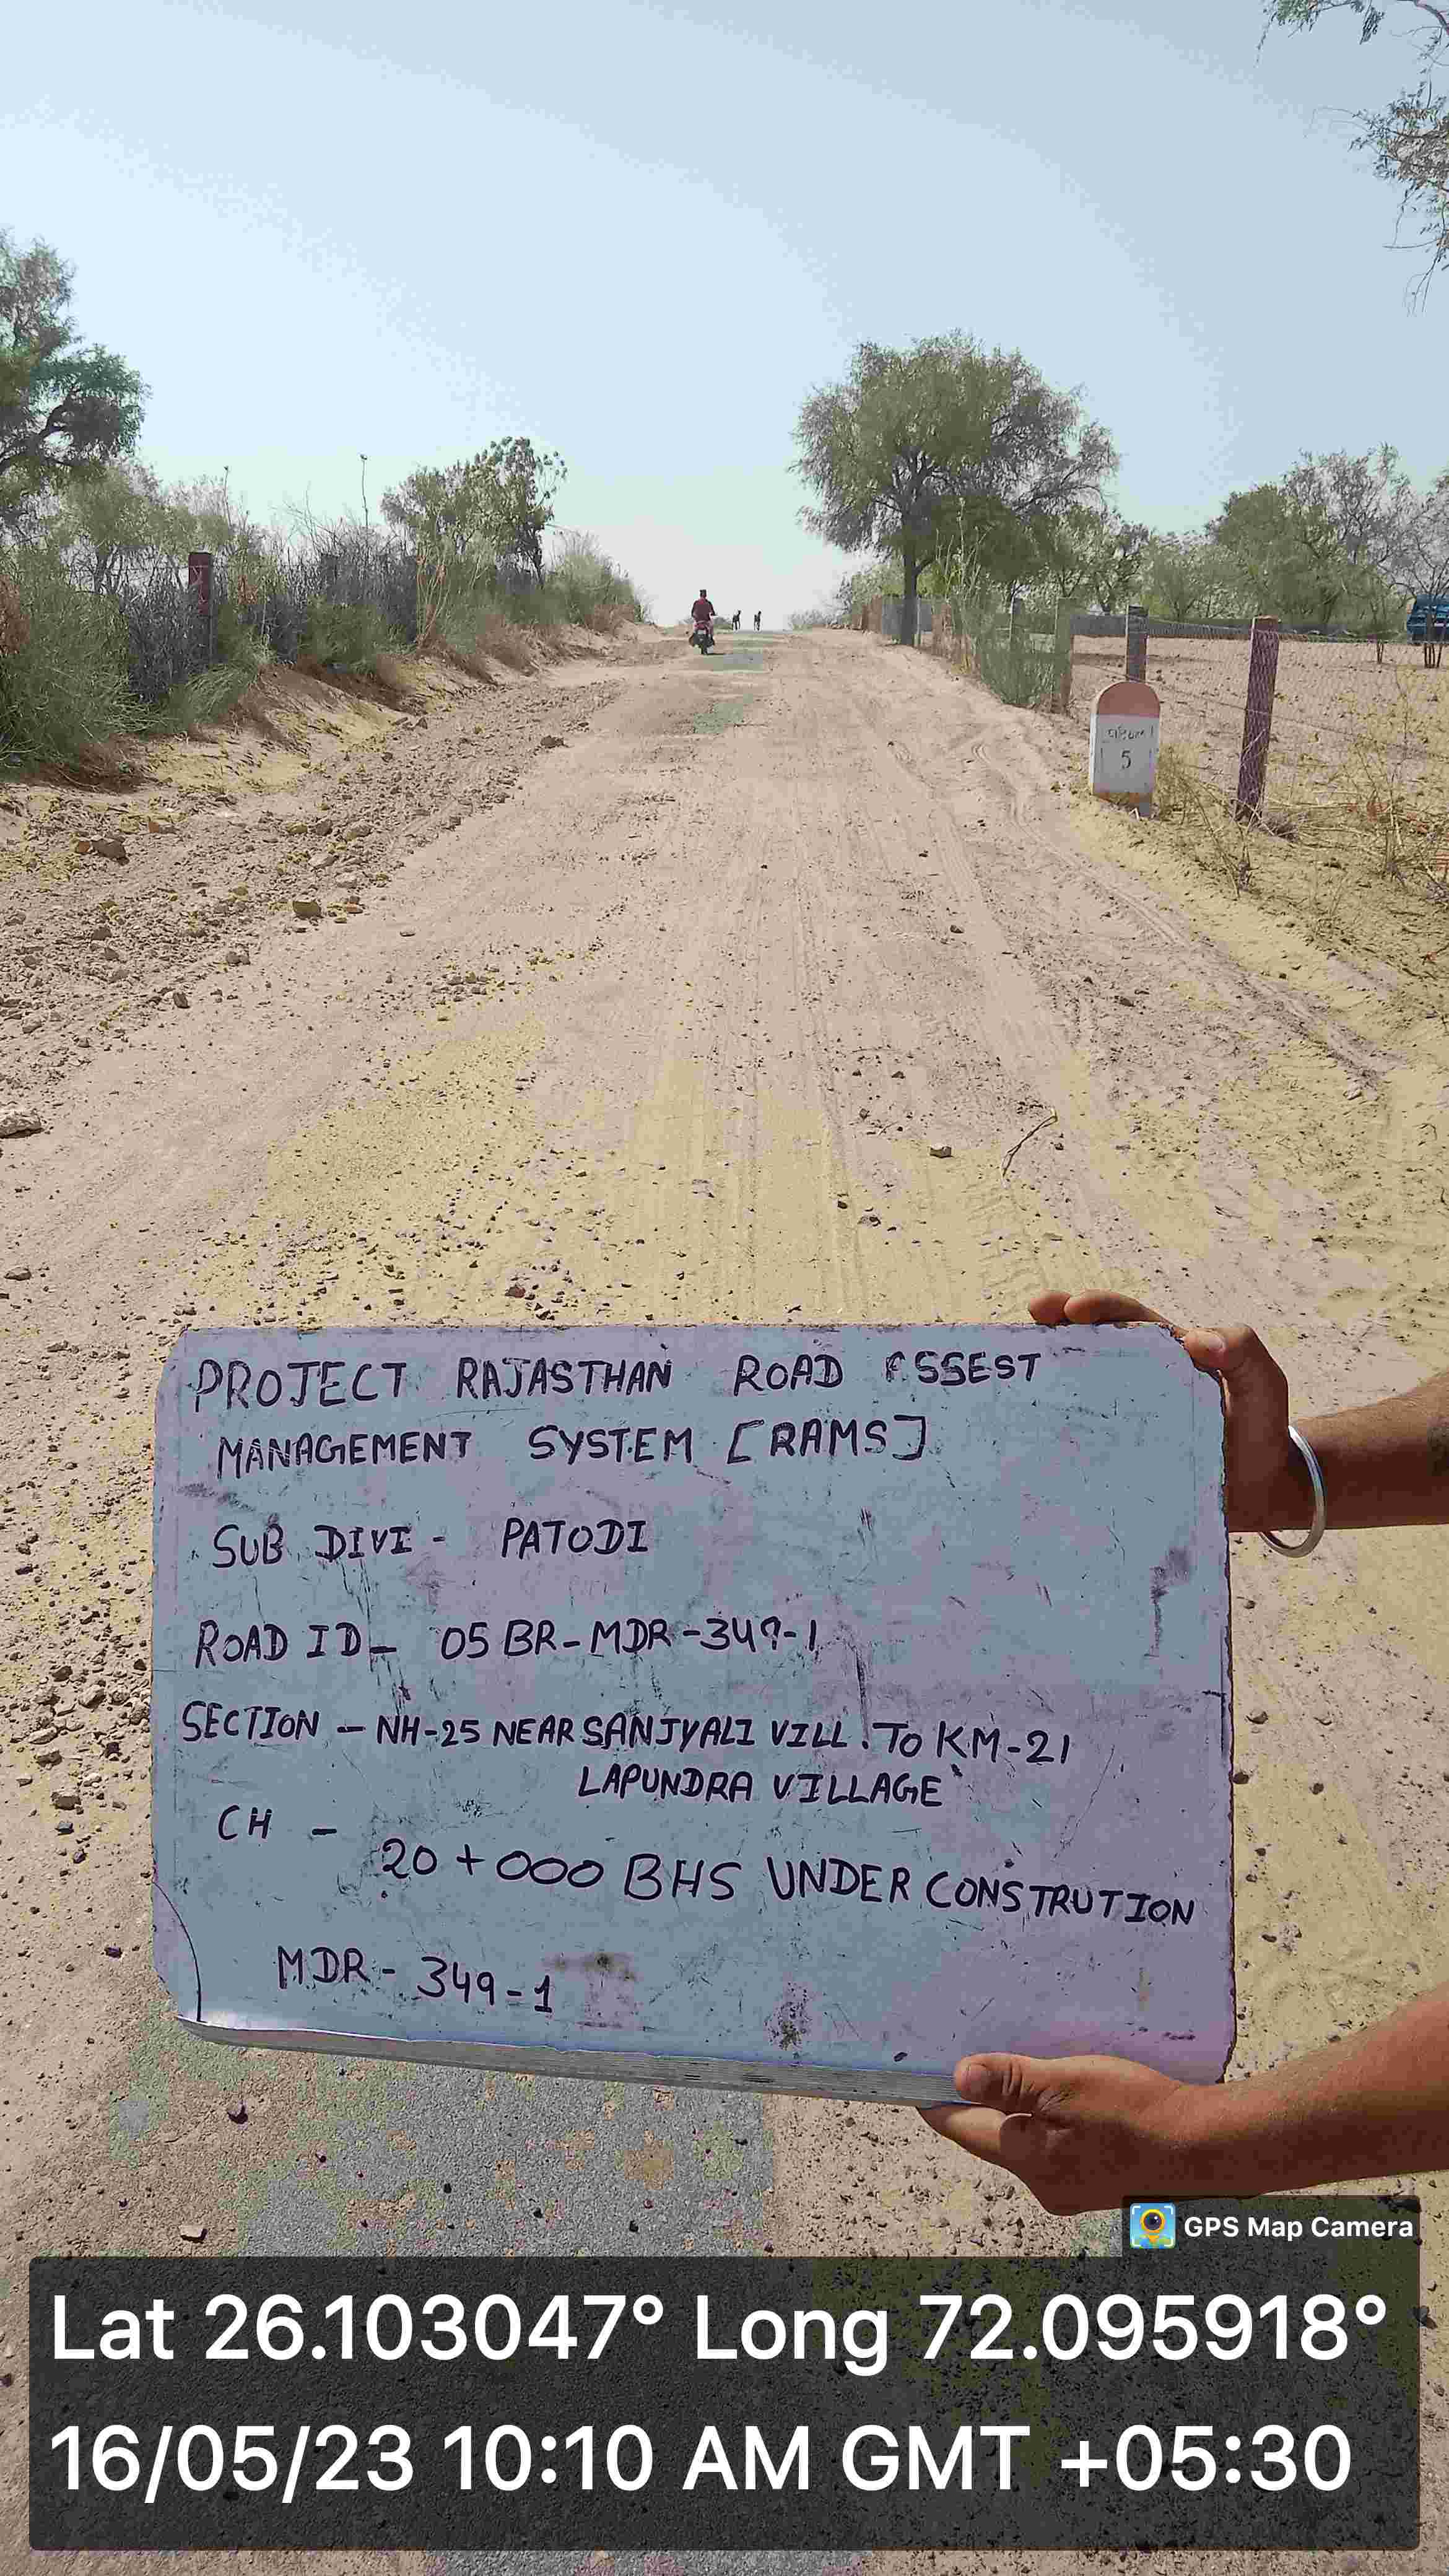 5
PROJECT RAJASTHAN ROAD ASSEST
MANAGEMENT SYSTEM [RAMS]
SUB DIVI - PATODI
ROAD ID - 05 BR-MDR-349-1
SECTION - NH-25 NEAR SANJYALI VILL. TO KM-21
LAPUNDRA VILLAGE
CH - 20+000 BHS UNDER CONSTRUTION
MDR - 349-1
GPS Map Camera
Lat 26.103047° Long 72.095918°
16/05/23 10:10 AM GMT +05:30